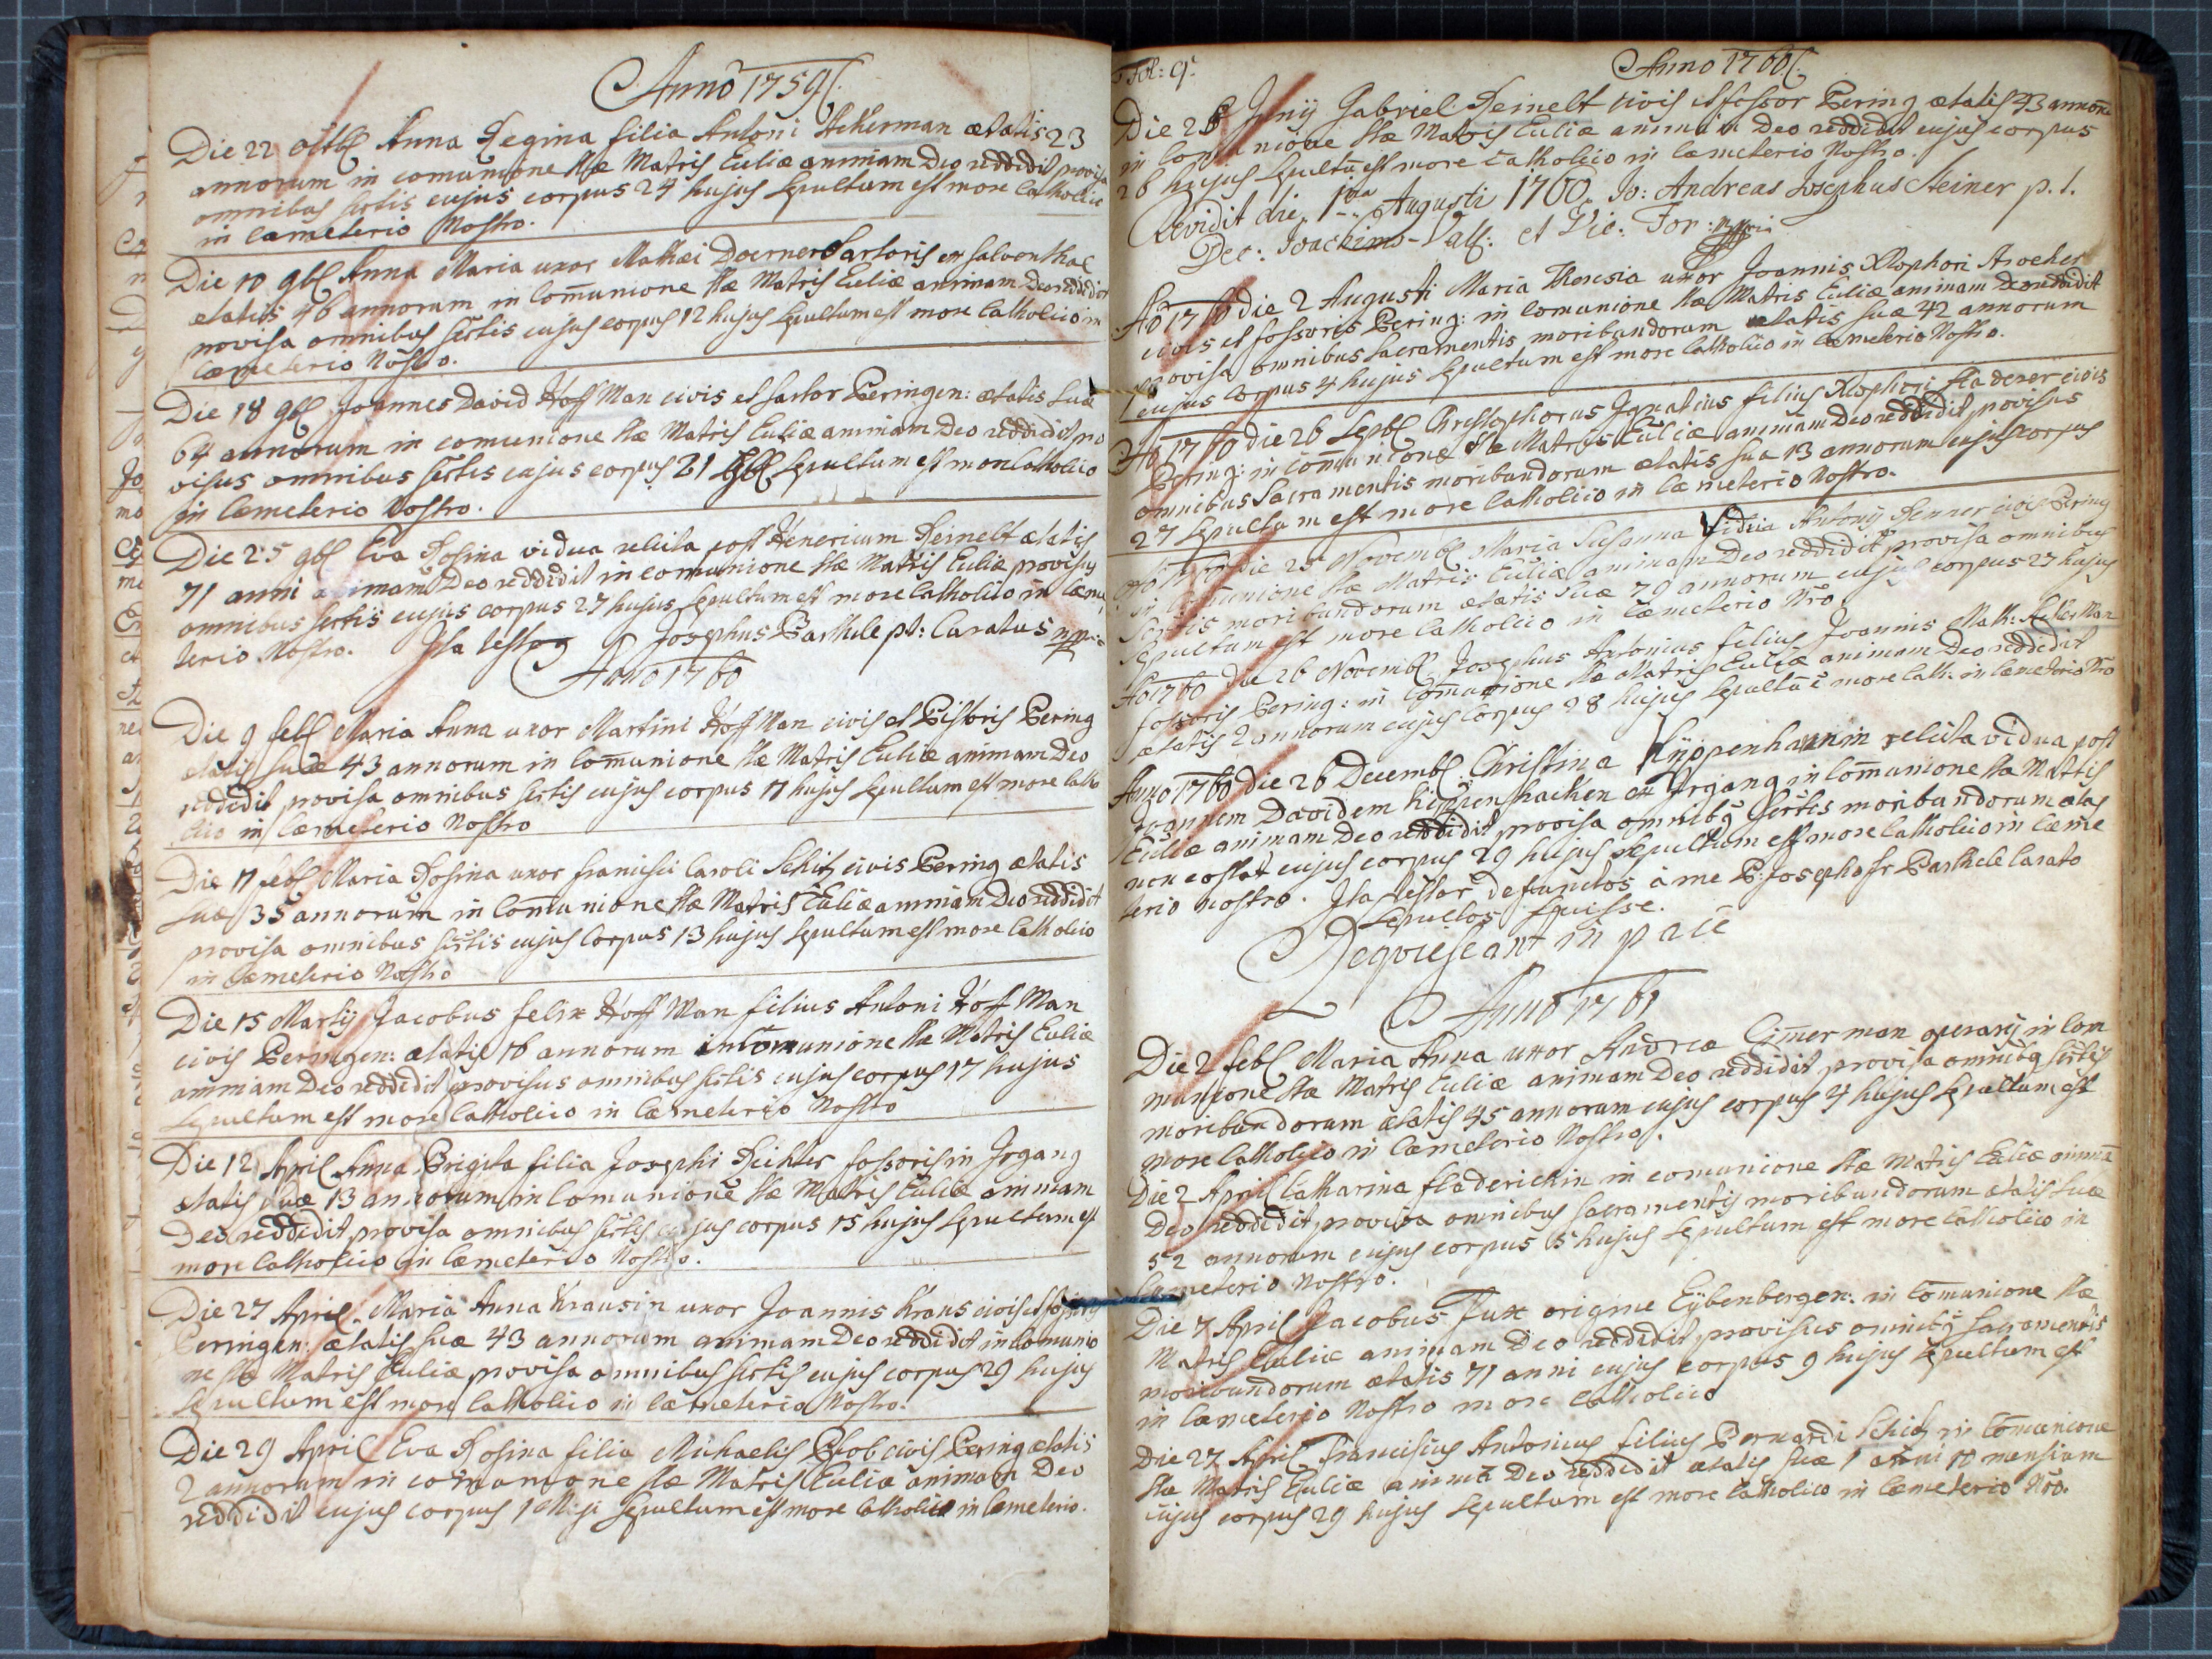 Anno 1759
Die 22 octb Anna Regina filia Antoni Ackerman ætatis 23
annorum in comunione Stæ Matris Eccliæ animam Deo reddidit provisa
omnibus Sctis cujus corpus 24 hujus Sepultum est more Catholic
in Cæmeterio Nostro.
Die 10 9b Anna Maria uxor Mathæi Doerner Sartoris ex Salventhal
ætatis 46 annorum in Com̄unione Stæ Matris Eccliæ animam Deo reddidit
provisa omnibus Sctis cujus corpus 12 hujus Sepultum est more Catholico in
Cæmeterio Nostro.
Die 18 9b Joannes David Hoff Man civis et Sartor Peringen: ætatis Suæ
64 annorum in comunione Stæ Matris Eccliæ animam Deo reddidit pro
visus omnibus Sctis cujus corpus 21 9b Sepultum est more Catholico
in Cæmeterio Nostro.
Die 25 9b Eva Rosina vidua relicta post Henericum Reinelt ætatis
71 anni animam Deo reddidit in comunione Stæ Matris Eccliæ provisus
omnibus Sctis cujus corpus 27 hujus Sepultum est more Catholico in Cæme
terio Nostro. Ita testor Josephus Barthele pt: Curatus mppria
Anno 1760
Die 9 feb Maria Anna uxor Martini Hoff Man civis et Pistoris Pering
ætatis Suæ 43 annorum in Com̄unione Stæ Matris Eccliæ animam Deo
reddidit provisa omnibus Sctis cujus corpus 11 hujus Sepultum est more Catho
lico in Cæmeterio Nostro
Die 11 feb Maria Rosina uxor francisci Caroli Schitz civis Pering ætatis
Suæ 35 annorum in Com̄unione Stæ Matris Eccliæ animam Deo reddidit
provisa omnibus Sctis cujus Corpus 13 hujus Sepultum est more Catholico
in Cæmeterio Nostro
Die 15 Martij Jacobus felix Hoff Man filius Antoni Hoff Man
civis Peringen: ætatis 16 annorum in Com̄unione Stæ Matris Eccliæ
animam Deo reddidit provisus omnibus Sctis cujus corpus 17 hujus
Sepultum est more Catholico in Cæmeterio Nostro
Die 12 April Anna Brigita filia Josephi Richter fossoris in Irgang
ætatis Suæ 13 annorum in Comunione Stæ Matris Eccliæ animam
Deo reddidit provisa omnibus Sctis cujus corpus 15 hujus Sepultum est
more Catholico in Cæmeterio Nostro.
Die 27 April. Maria Anna Krausin uxor Joannis Kraus civis et fossoris
Peringen: ætatis Suæ 43 annorum animam Deo reddidit in Comunio
ne Stæ Matris Eccliæ provisa omnibus Sctis cujus corpus 29 hujus
Sepultum est more Catholico in Cæmeterio Nostro.
Die 29 April Eva Rosina filia Michaelis Plob civis Pering ætatis
2 annorum in comunione Stæ Matris Eccliæ animam Deo
reddidit cujus corpus 1 Maji Sepultum est more Catholico in Cæmeterio.
Fol: 9.
Anno 1760
Die 26 Junij Gabriel Reinelt civis et fossor Pering ætatis 43 annorū
in Comunione Stæ Matris Eccliæ animam Deo reddidit cujus corpus
28 hujus Sepultū est more Catholico in Cæmeterio Nostro.
Revidit die 1ma Augusti 1760. Jo: Andreas Josephus Steiner p.t.
Dec: Joachims-Vall: et Vic: For: mppria
Ao 1760 die 2 Augusti Maria Theresia uxor Joannis Xtophori
civis et fossoris Pering: in Comunione Stæ Matris Eccliæ animam Deo reddidit
provisa omnibus Sacramentis moribundorum ætatis Suæ 42 annorum
cujus Corpus 4 hujus Sepultum est more Catholico in Cæmeterio Nostro.
Ao 1760 die 26 Septb Christophorus Ignatius filius Xtophori fladerer civis
Pering: in Com̄unione Stæ Matris Eccliæ animam Deo reddidit provisus
omnibus Sacramentis moribundorum ætatis Sua 13 annorum cujus corpus
27 Sepultum est more Catholico in Cæmeterio Nostro.
Ao 1760 die 25 Novemb Maria Susanna Vidua Antonij Renner civis Pering
in Comunione Stæ Matris Eccliæ animam Deo reddidit provisa omnibus
Sctis moribundorum ætatis Suæ 70 annorum cujus corpus 27 hujus
Sepultum est more Catholico in Cæmeterio Nro
Ao 1760 Die 26 Novemb Josephus Antonius filius Joannis Math: Keller Man
fossoris Pering: in Com̄unione Stæ Matris Eccliæ animam Deo reddidit
ætatis 2 annorum cujus Corpus 28 hujus Sepultū ē more Cath: in Cæmeterio Nro
Anno 1760 die 26 Decemb Christina relicta vidua post
Joannem Davidem ex Irgang in Com̄unione Stæ Matris
Eccliæ animam Deo reddidit provisa omnibq Sctis moribundorum ætas
non constat cujus corpus 29 hujus Sepultum est more Catholico in Cæme
terio nostro. Ita testor defunctos à me P: Josepho fr Barthele Curato
Sepultos fuisse.
Reqviescant in pace
Anno 1761
Die 2 feb Maria Anna uxor Andreæ Cim̄erman operarij in Com
munione Stæ Matris Eccliæ animam Deo reddidit provisa omnibq Sctis
moribundorum ætatis 45 annorum cujus corpus 4 hujus Sepultum est
more Catholico in Cæmeterio Nostro.
Die 2 April Catharina fladerickin in comunione Stæ Matris Eccliæ animā
Deo reddidit provisa omnibus Sacramentis moribundorum ætatis Suæ
52 annorum cujus corpus 5 hujus Sepultum est more Catholico in
Cæmeterio Nostro.
Die 7 April Jacobus Fux origine Eybenbergen: in Com̄unione Stæ
Matris Eccliæ animam Deo reddidit provisus omnibq Sacramentis
moribundorum ætatis 71 anni cujus corpus 9 hujus Sepultum est
in Cæmeterio Nostro more Catholico
Die 27 April Franciscus Antonius filius Bernardi Schitz in Com̄unione
Stæ Matris Eccliæ animā Deo reddidit ætatis Suæ 1 anni 10 mensium
cujus corpus 29 hujus Sepultum est more Catholico in Cæmeterio Nro.